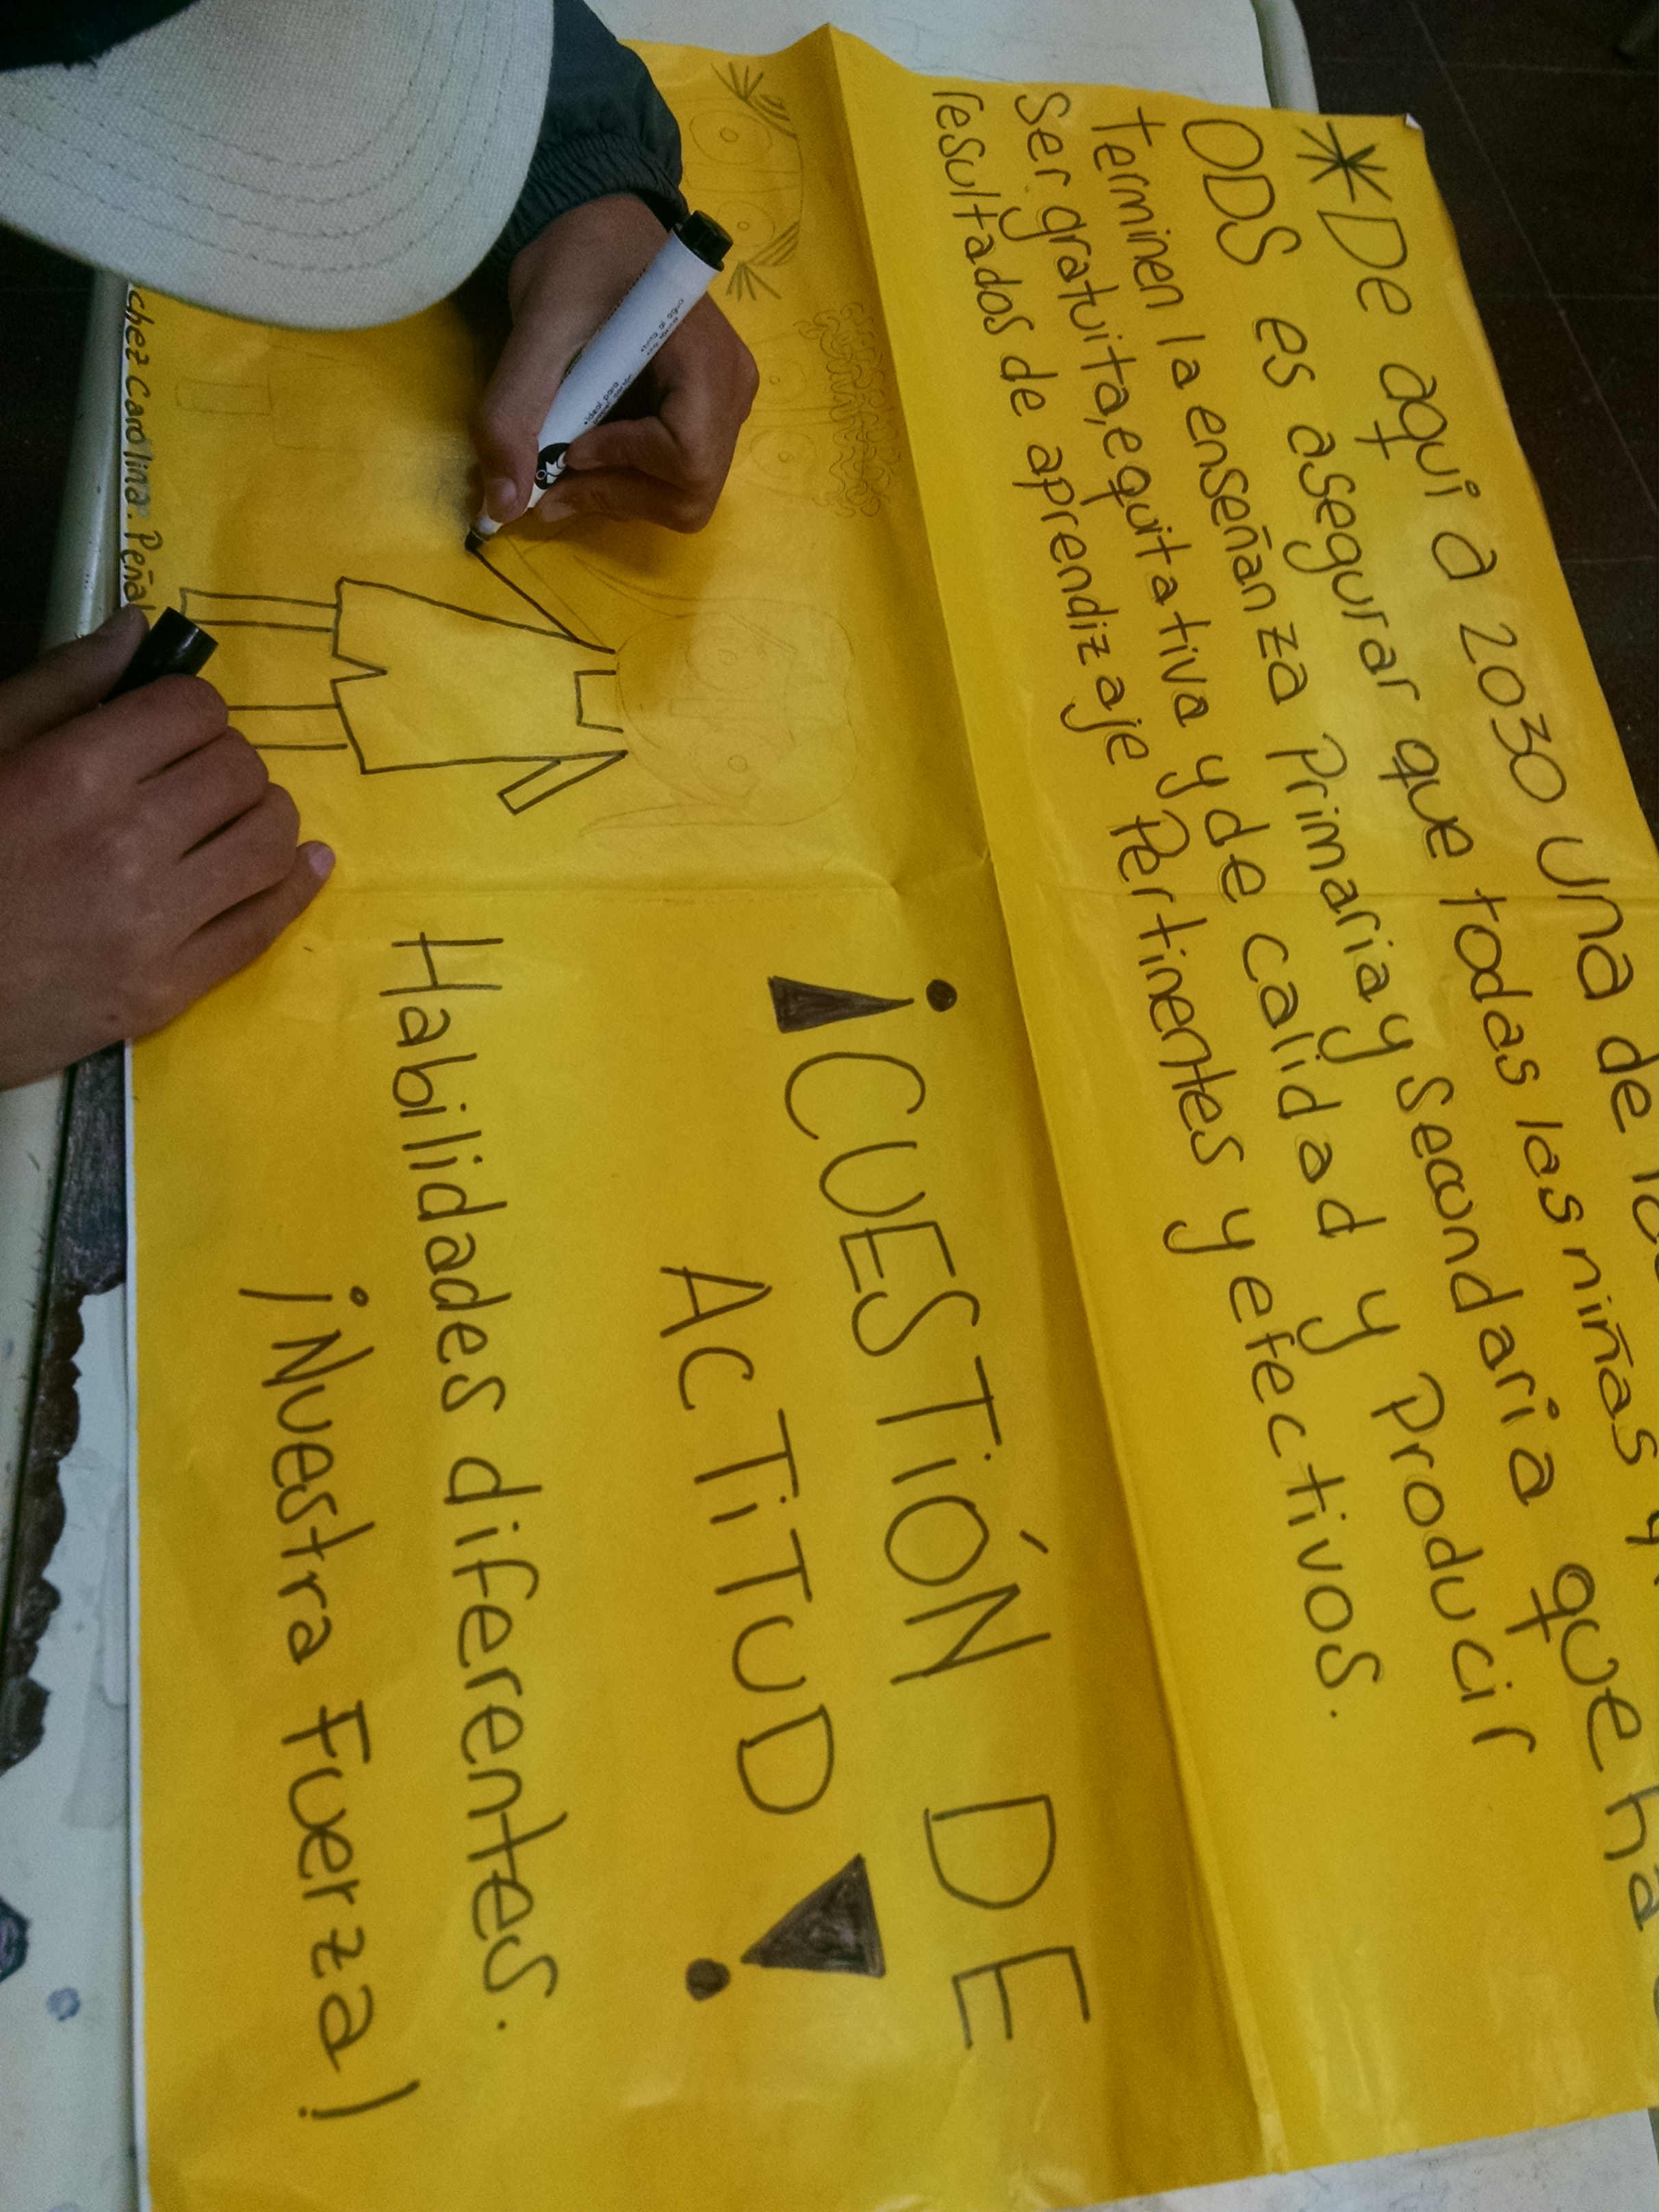 *De aqui a 2030 una de
ODS es asegurar que todas las niñas y
terminen la enseñanza Primaria y secundaria que
ser gratuita, equitativa y de calidad y Producir
resultados de aprendizaje Pertinentes y efectivos.
¡CUESTIÓN DE
ACTITUD!
Habilidades diferentes.
¡Nuestra Fuerza!
chez Carolina. Peñal